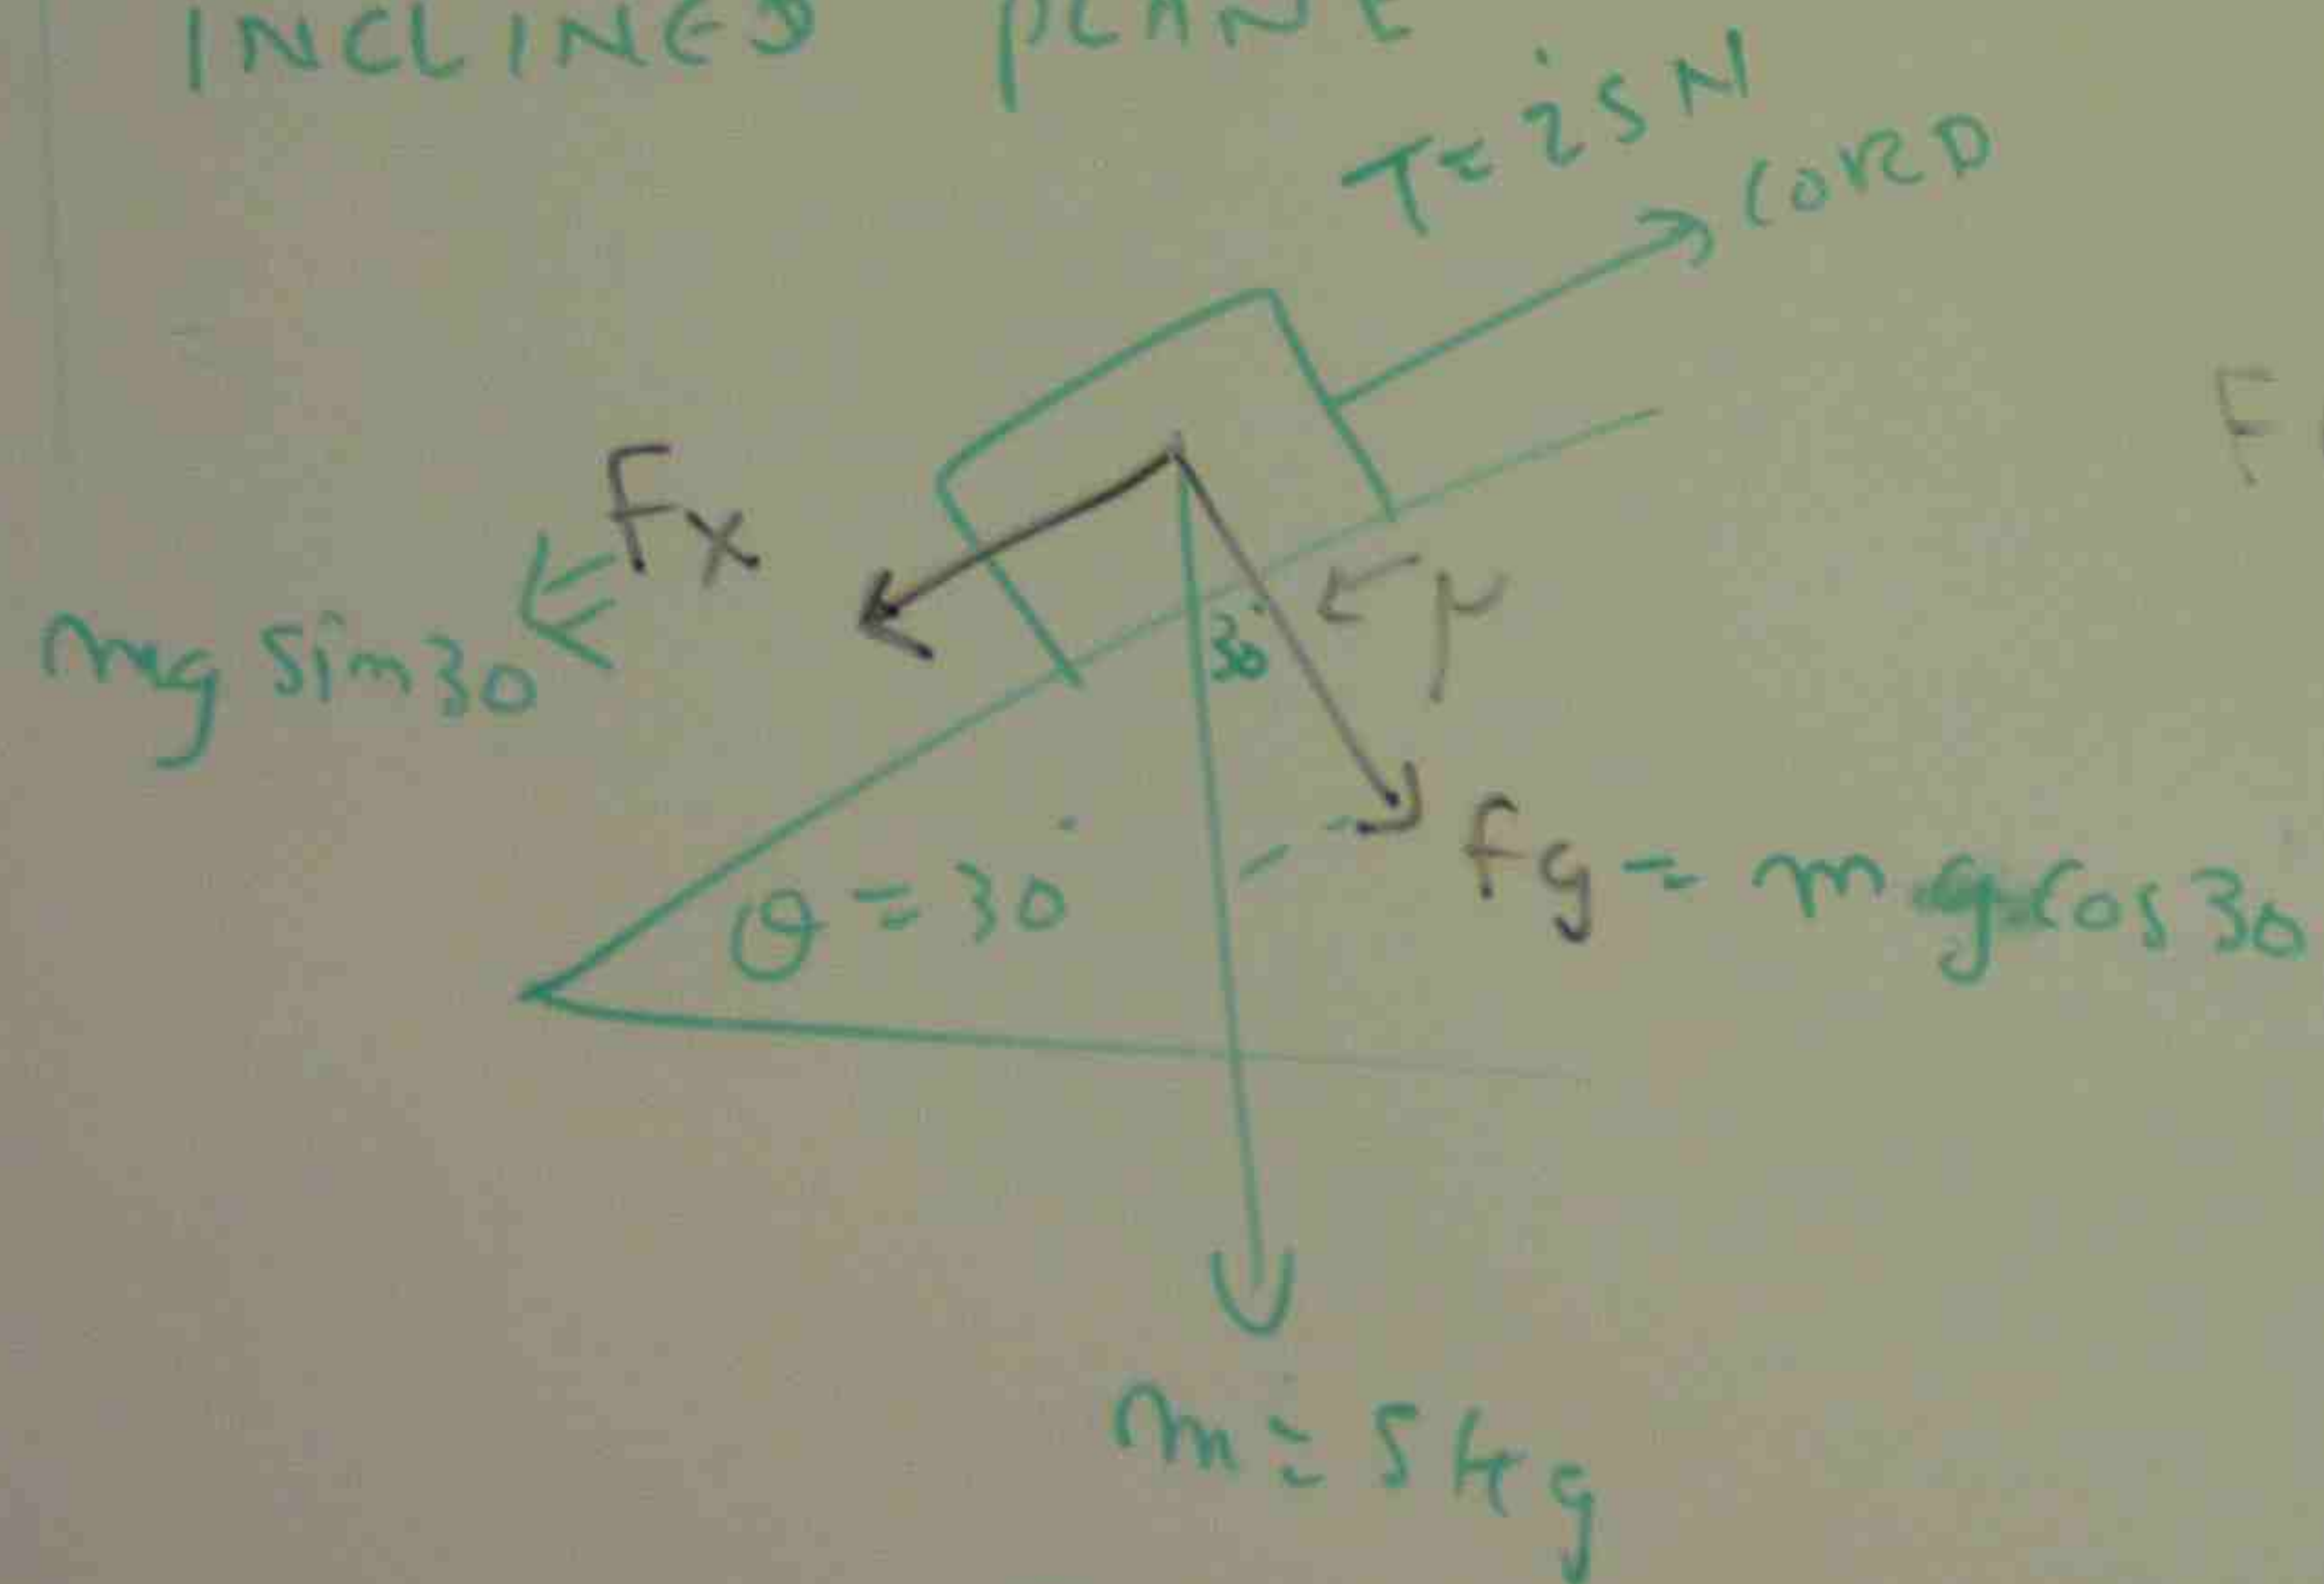 INCLINED PLANE
T = 25 N
CORD
Fx
mg sin 30
30°
μ
θ = 30
Fy = mg cos 30
m = 5 kg
F